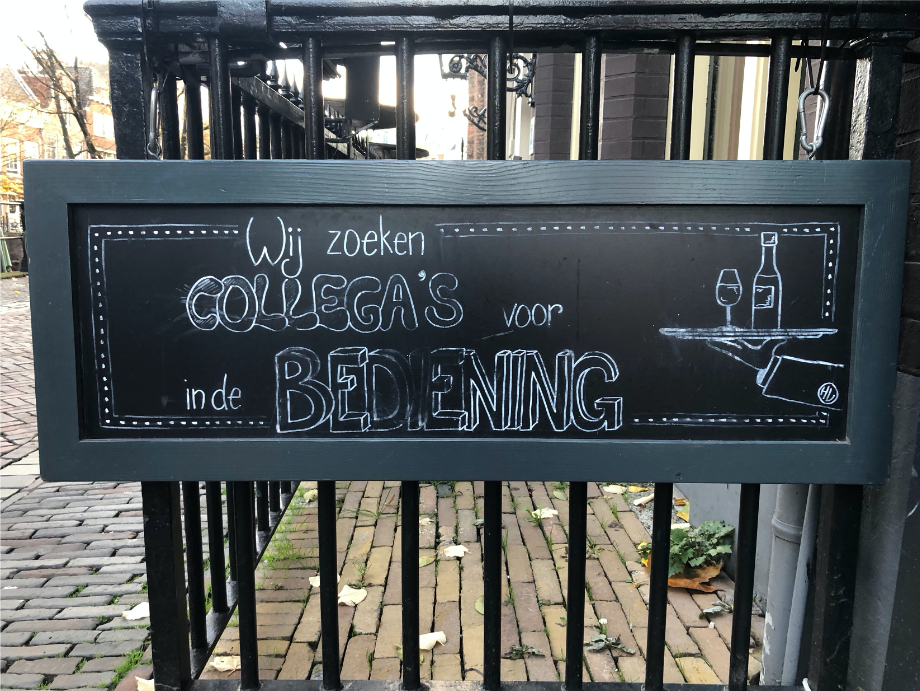 Wij zoeken
COLLEGA'S voor
in de BEDIENING
HL